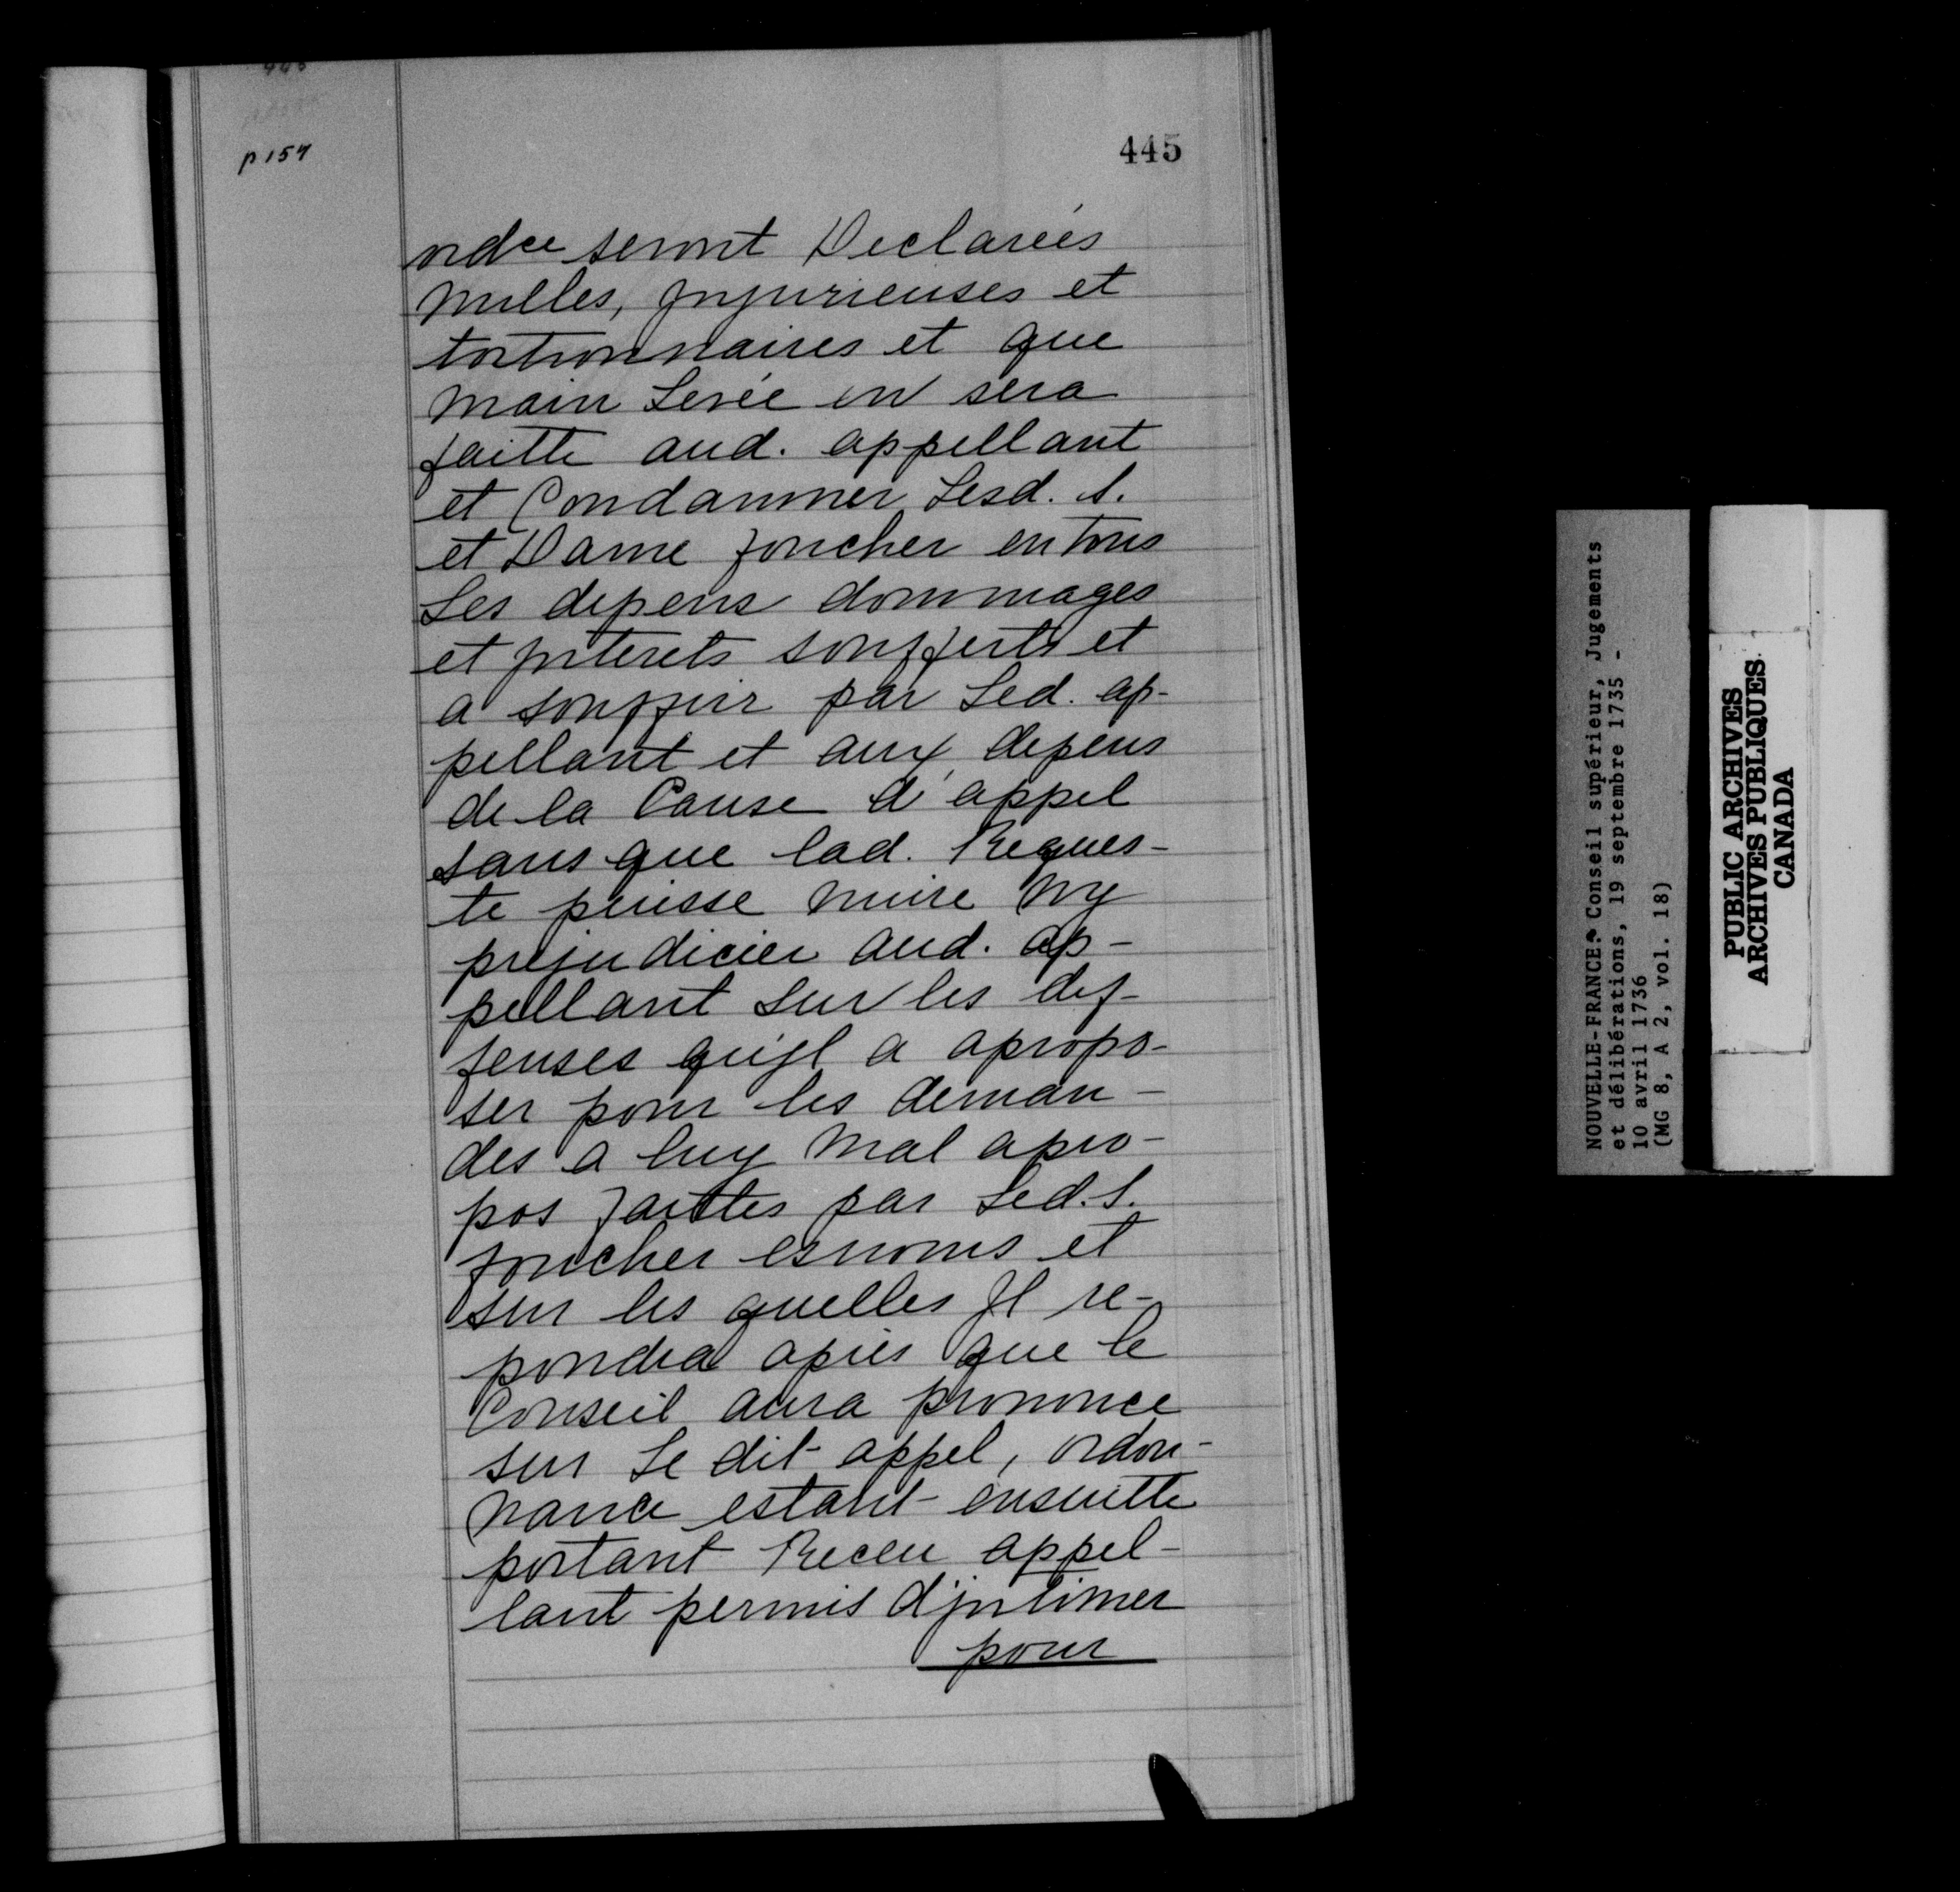 p 157
445
ordce seront Declareés
nulles, jnjurieuses et
tortionnaires et que
main Levée en sera
faitte aud. appellant
et Condamner Lesd. S.
et Dame foucher en tous
Les depens dommages
et jnterets soufferts et
a souffrir par Led. ap-
pellant et aux depens
de la Cause d'appel
sans que lad. Reques-
te puisse nuire ny
prejudicier aud. ap-
pellant sur les def-
fenses qu'jl a apropo-
ser pour les deman-
des a luy mal apro-
pos faittes par Led. S.
foucher esnoms et
sur les quelles Jl re-
pondra après que le
Conseil aura prononce
sur Le dit appel, ordon-
nance estant ensuitte
portant Receu appel-
lant permis d'jntimer
pour
NOUVELLE-FRANCE: Conseil supérieur, Jugements
et délibérations, 19 septembre 1735 -
10 avril 1736
(MG 8, A 2, vol. 18)
PUBLIC ARCHIVES
ARCHIVES PUBLIQUES
CANADA